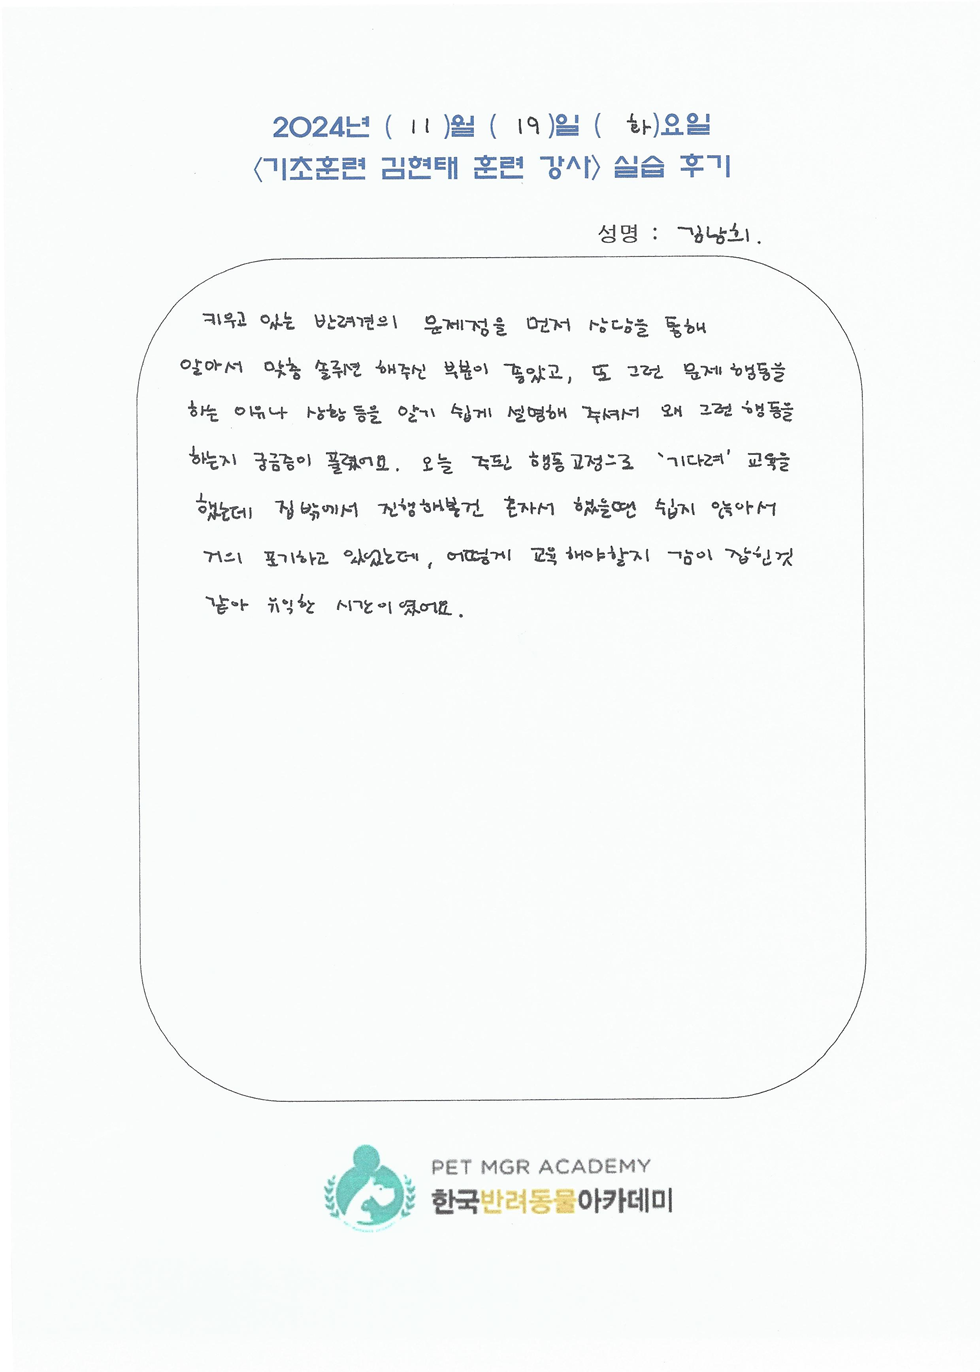 2024년 ( 11 )월 ( 19 )일 ( 화 )요일
<기초훈련 김현태 훈련 강사> 실습 후기
성명 : 김남희.
키우고 있는 반려견의 문제점을 먼저 상담을 통해
알아서 맞춤 솔루션 해주신 부분이 좋았고, 또 그런 문제 행동을
하는 이유나 상황 등을 알기 쉽게 설명해 주셔서 왜 그런 행동을
하는지 궁금증이 풀렸어요. 오늘 주된 행동교정으로 '기다려' 교육을
했는데 집 밖에서 진행해볼건 혼자서 했을땐 쉽지 않아서
거의 포기하고 있었는데, 어떻게 교육해야할지 감이 잡힌것
같아 유익한 시간이였어요.
PET MGR ACADEMY
한국반려동물아카데미